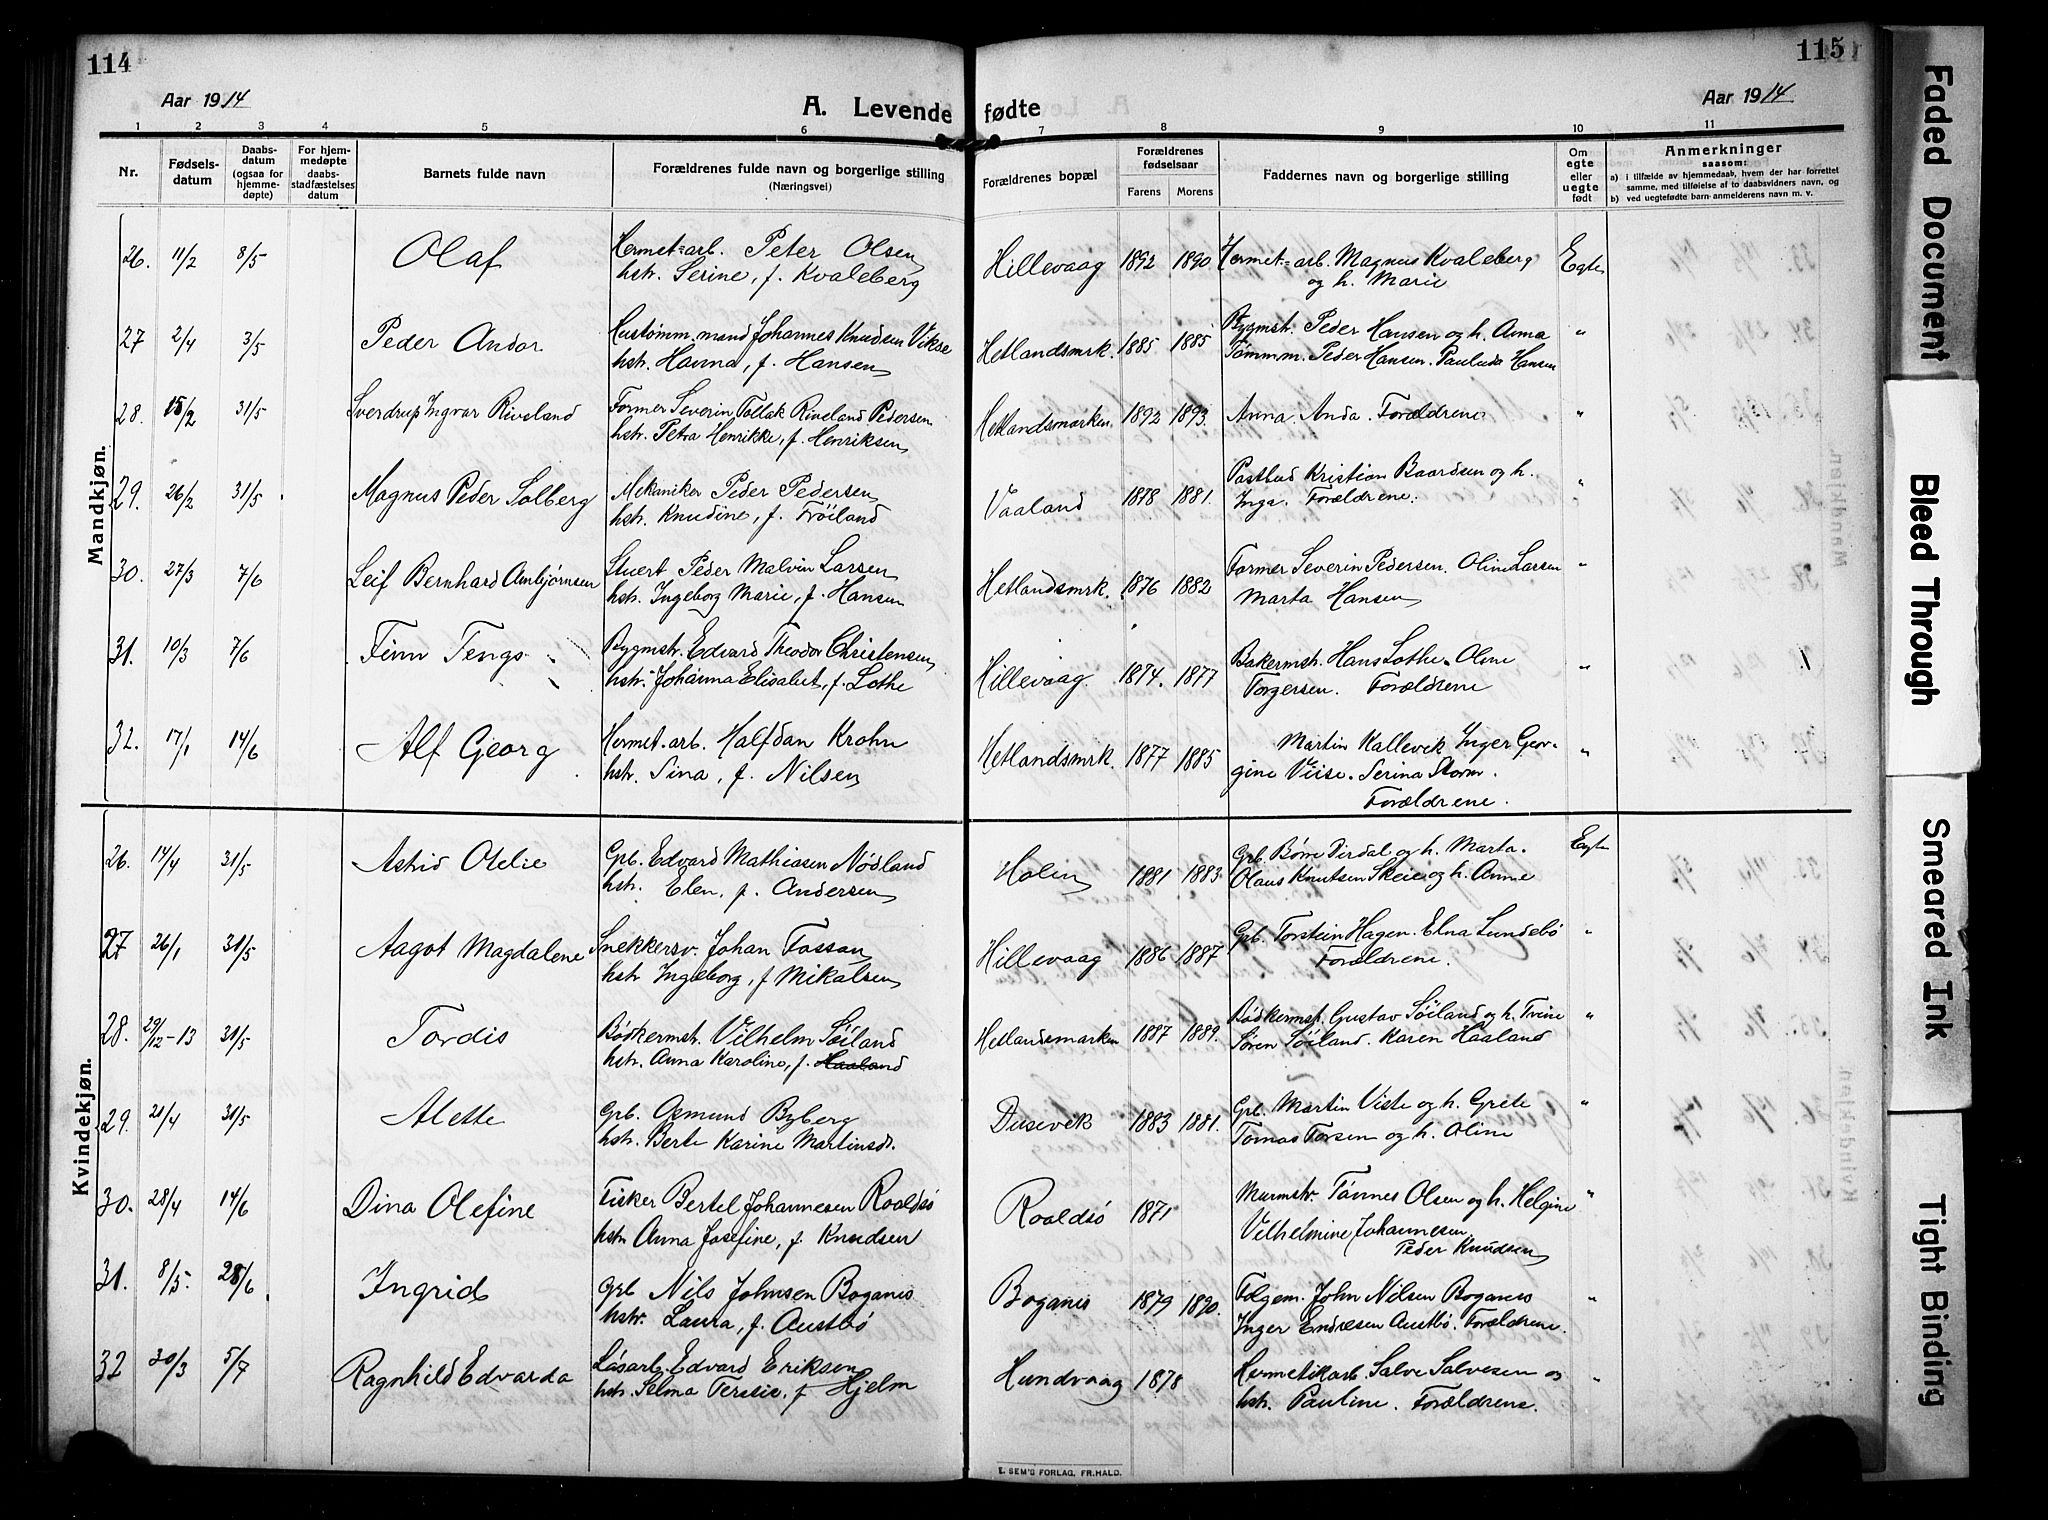 114
115
Aar 1914
A. Levende fødte
Aar 1914
1 2 3 4 5 6 7 8 9 10 11
Nr.
Fødsels-
datum
Daabs-
datum
(ogsaa for
hjemme-
døpte)
For hjem-
medøpte
daabs-
stadfæstelses
datum
Barnets fulde navn
Forældrenes fulde navn og borgerlige stilling
(Næringsvei)
Forældrenes bopæl
Forældrenes
fødselsaar
Farens Morens
Faddernes navn og borgerlige stilling
Om
egte
eller
uegte
født
Anmerkninger
saasom:
a) i tilfælde av hjemmedaab, hvem der har forrettet
samme, med tilføielse af to daabsvidners navn, og
b) ved uegtefødte barn anmelderens navn m. v.
Mandkjøn.
26. 11/2 8/5 Olaf Hermet-arb. Peter Olsen Hillevaag 1892 1890 Hermet-arb. Magnus Kvaleberg Egte
hstr. Serine, f. Kvaleberg og h. Marie
27 2/4 3/5 Peder Andor Hustømm.mand Johannes Knudsen Vikse Hetlandsmrk. 1885 1885 Bygmstr. Peder Hansen og h. Anna "
hstr. Hanna, f. Hansen Tømmm. Peder Hansen. Paulada Hansen
28. 15/2 31/5 Sverdrup Ingvar Riveland Former Severin Tollak Riveland Pedersen Hetlandsmarken. 1892 1893. Anna Anda. Forældrene "
hstr. Petra Henrikke, f. Henriksen
29. 26/2 31/5 Magnus Peder Solberg Mekaniker Peder Pedersen Vaaland 1878 1881. Postbud Kristian Baardsen og h. "
hstr. Knudine, f. Frøiland Inga. Forældrene.
30. 27/3 7/6 Leif Bernhard Ambjørnsen Stuert Peder Malvin Larsen Hetlandsmrk. 1876 1882 Former Severin Pedersen. Olin Larsen "
hstr. Ingeborg Marie, f. Hansen Marta Hansen
31. 10/3 7/6 Finn Tengs Bygmstr. Edvard Theodor Christensen Hillevaag. 1874. 1877 Bakermstr. Hans Lothe. Oline "
hstr. Johanna Elisabet, f. Lothe Torgersen. Forældrene
32. 17/1 14/6 Alf Georg Hermet.arb. Halfdan Krohn Hetlandsmrk. 1877 1885 Martin Kallevik Inger Geor- "
hstr. Sina, f. Nilsen gine Viise. Serina Storm.
Forældrene.
Kvindekjøn.
26. 14/4 31/5 Astrid Otelie Gpb. Edvard Mathiasen Nødland Holin 1881 1883 Gpb. Børre Dirdal og h. Marta. Egte
hstr. Elen, f. Andersen Olaus Knutsen Skeie og h. Anne
27 26/1 31/5 Aagot Magdalene Snekkersv. Johan Fossan Hillevaag 1886 1887 Gpb. Torstein Hagen. Elna Lundebø "
hstr Ingeborg, f Mikalsen Forældrene.
28. 29/12-13 31/5 Tordis Bødkermstr. Vilhelm Søiland Hetlandsmarken 1887 1889. Bødkermstr. Gustav Søiland og h. Trine "
hstr. Anna Karoline, f. Haaland Søren Søiland. Karen Haaland
29. 21/4 31/5 Alette Gpb. Osmund Byberg Dusevik 1883 1881. Gpb. Martin Viste og h. Grete "
hstr. Berte Karine Martinsd. Tomas Torsen og h. Oline
30. 28/4 14/6 Dina Olefine Fisker Bertel Johannesen Roaldsø Roaldsø 1871 Murmstr. Tønnes Olsen og h. Helgine "
hstr Anna Josefine, f. Knudsen Vilhelmine Johannesen.
Peder Knudsen
31. 8/5. 28/6 Ingrid Gpb Nils Johnsen Boganes Boganes 1879 1890. Folgem. John Nilsen Boganes "
hstr. Laura, f. Austbø Inger Endresen Austbø. Forældrene.
32 30/3 5/7 Ragnhild Edvarda Løsarb. Edvard Eriksen Hundvaag 1878 Hermetikarb. Salve Salvesen og "
hstr. Selma Teresie, f Hjelm hstr. Pauline. Forældrene.
E. SEM'S FORLAG, FR.HALD.
Faded Document
Bleed Through
Smeared Ink
Tight Binding